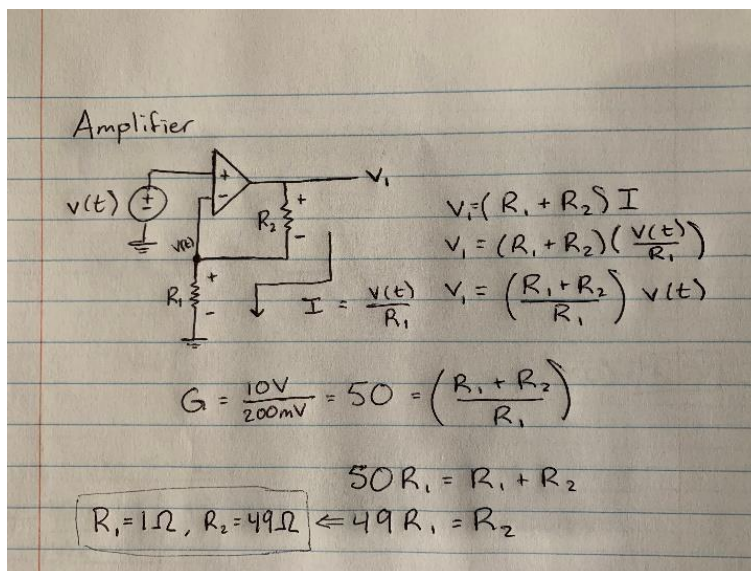 Amplifier
v(t) ± + - V₁
R₂ + -
v(t)
R₁ + -
I = v(t)/R₁
V₁=(R₁ + R₂) I
V₁ = (R₁ + R₂)(v(t)/R₁)
V₁ = ((R₁ + R₂)/R₁) v(t)
G = 10V/200mV = 50 = ((R₁ + R₂)/R₁)
50R₁ = R₁ + R₂
R₁=1Ω, R₂=49Ω ⇐ 49R₁ = R₂